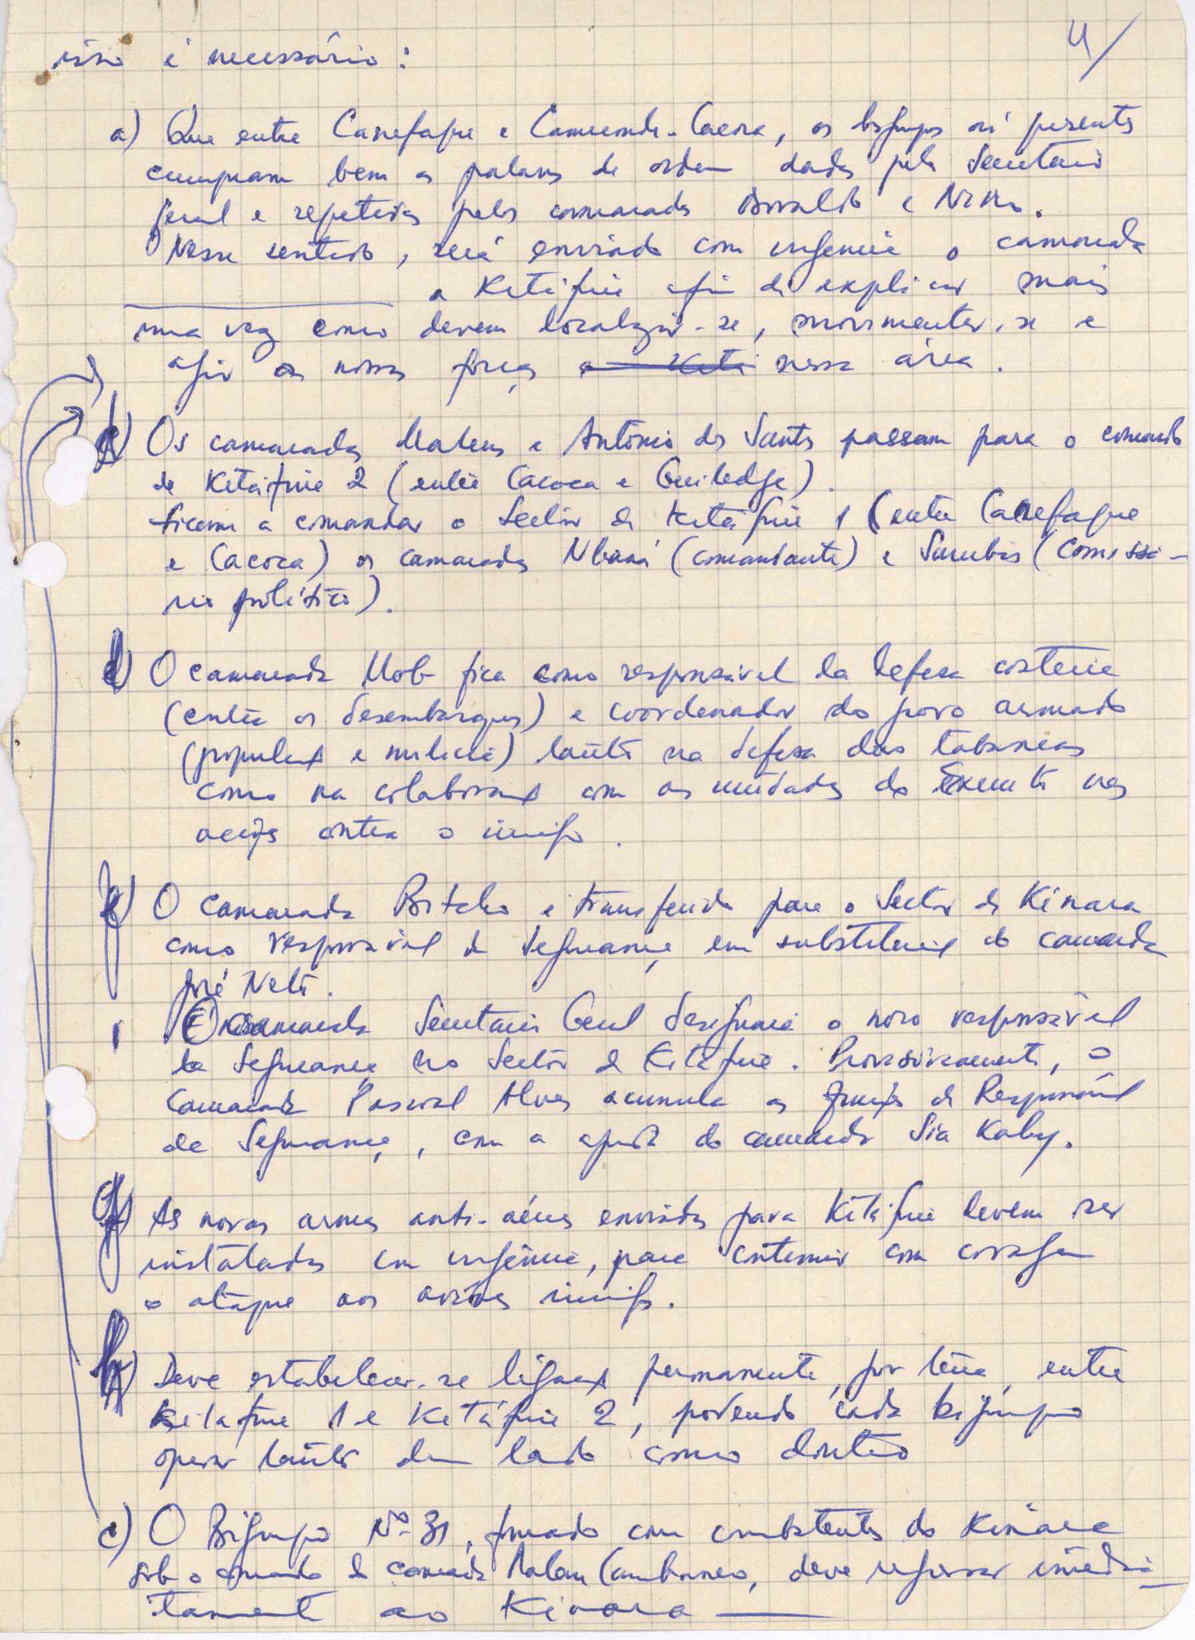 4/
isso é necessário:
a) Que entre Canefaque e Cameconde-Cacoca, os bigrupos aí presentes
cumpram bem as palavras de ordem dadas pelo Secretário
geral e repetidas pelos camaradas Osvaldo e Nino.
Nesse sentido, será enviado com urgência o camarada
a Kitáfine afim de explicar mais
uma vez como devem localizar-se, movimentar-se e
agir as nossas forças nessa área.
d) Os camaradas e António dos Santos passam para o comando
de Kitáfine 2 (entre Cacoca e Guiledge).
Ficam a comandar o Sector de Kitáfine 1 (entre Canefaque
e Cacoca) os camaradas Nbaná (comandante) e (Comissá-
rio político).
O camarada fica como responsável da defesa costeira
(contra os desembarques) e coordenador do povo armado
(população e milícia) tanto na defesa das tabancas
como na colaboração com as unidades do Exército nas
acções contra o inimigo.
f) O camarada Botcho é transferido para o Sector de Kinara
como responsável de Segurança, em substituição do camarada
José Neto.
O camarada Secretário Geral designará o novo responsável
da Segurança no Sector de Kitáfine. Provisoriamente, o
Camarada Pascoal Alves acumula as funções de Responsável
de Segurança, com a ajuda do camarada Sia Kaby.
g) As novas armas anti-aéreas enviadas para Kitáfine devem ser
instaladas com urgência, para continuar com coragem
o ataque aos aviões inimigos.
h) Deve estabelecer-se ligação permanente, por terra, entre
Kitafine 1 e Kitáfine 2, podendo cada bigrupo
operar tanto dum lado como doutro
c) O Bigrupo Nº 31, formado com combatentes do Kinára
sob o comando do camarada Malam, deve regressar imedia-
tamente ao Kinara